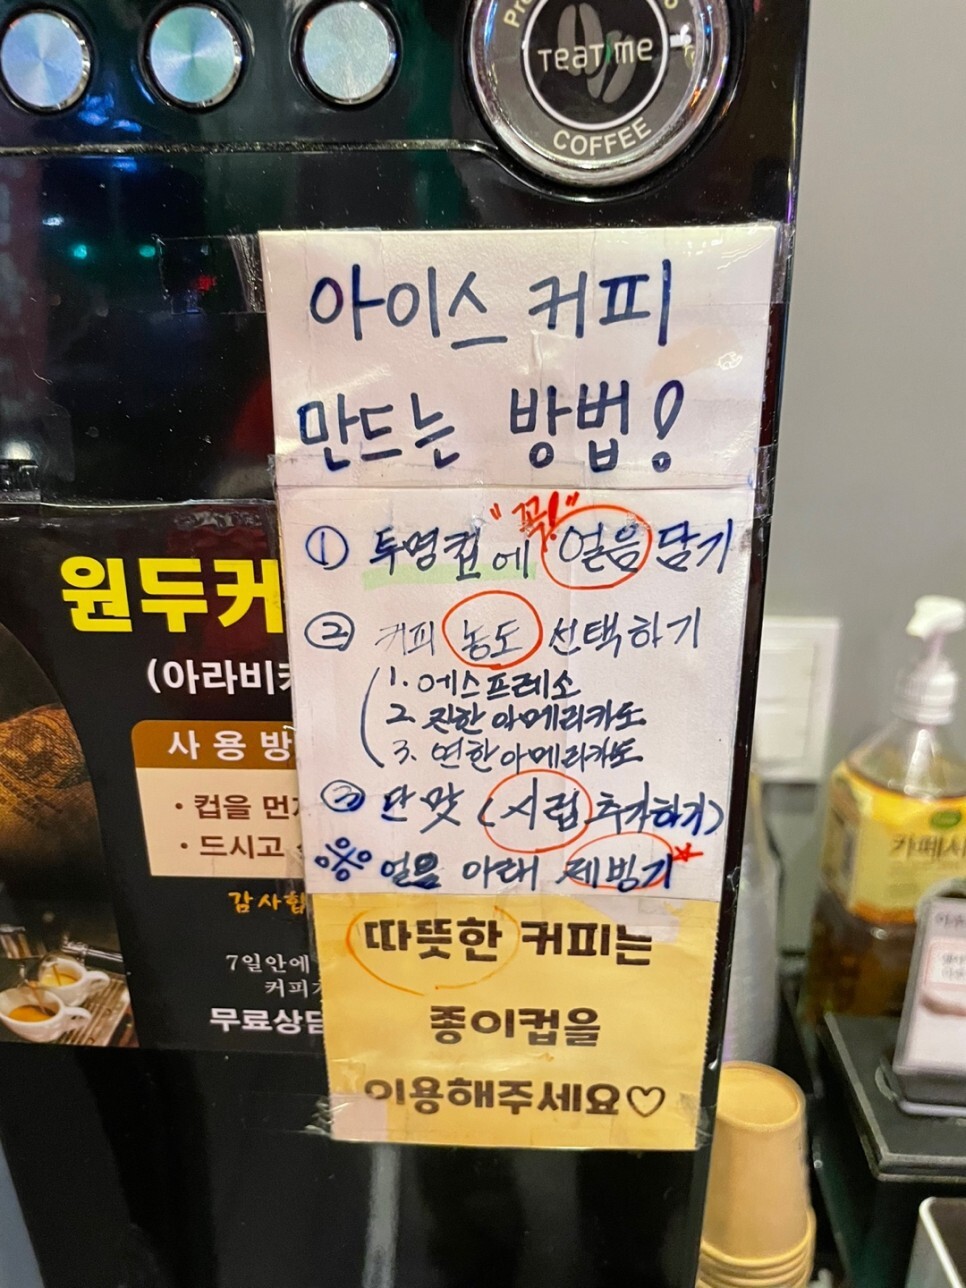 TEATIME
COFFEE
아이스 커피
만드는 방법!
"꼭!"
① 투명컵에 얼음 담기
② 커피 농도 선택하기
1. 에스프레소
2. 진한 아메리카노
3. 연한 아메리카노
③ 단맛 (시럽 추가하기)
※ 얼음 아래 제빙기
따뜻한 커피는
종이컵을
이용해주세요♡
원두커
(아라비카
사용방
• 컵을 먼저
• 드시고
감사합
7일안에
커피
무료상담
카페시